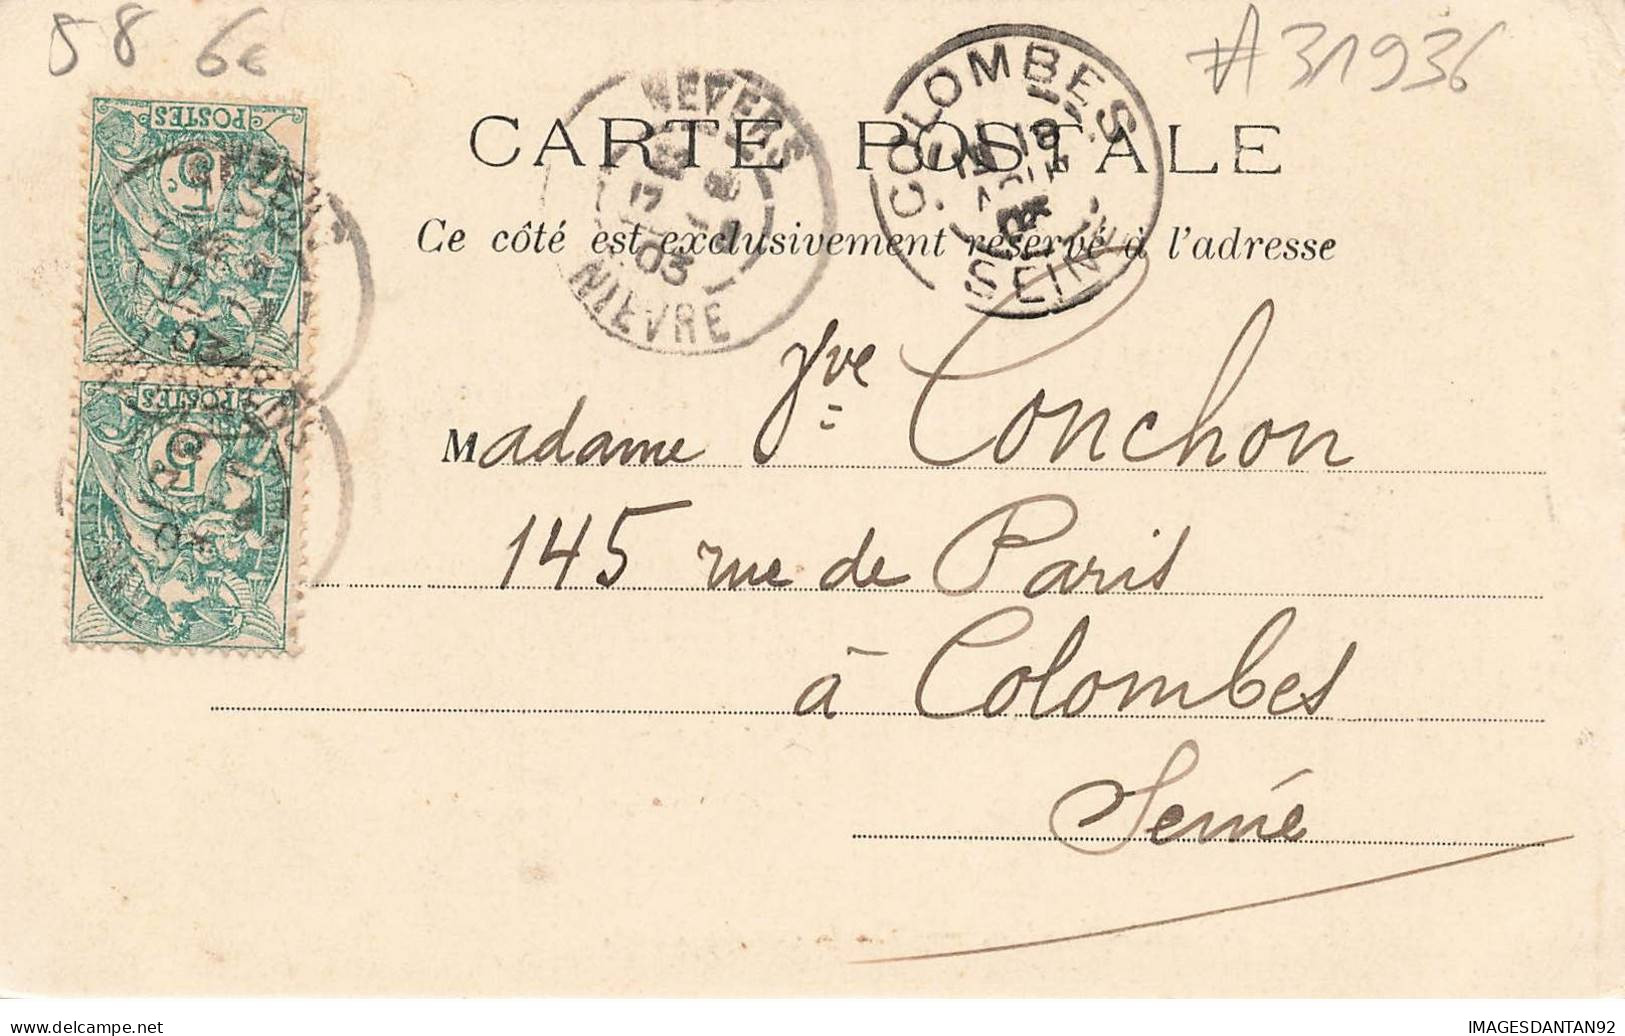 58 6€
#31936
CARTE POSTALE
Ce côté est exclusivement réservé à l'adresse
NEVERS
17
03
NIEVRE
COLOMBES
03
SEINE
POSTES
5
POSTES
5
Madame Yve Conchon
145 rue de Paris
à Colombes
Seine
IMAGESDANTAN92